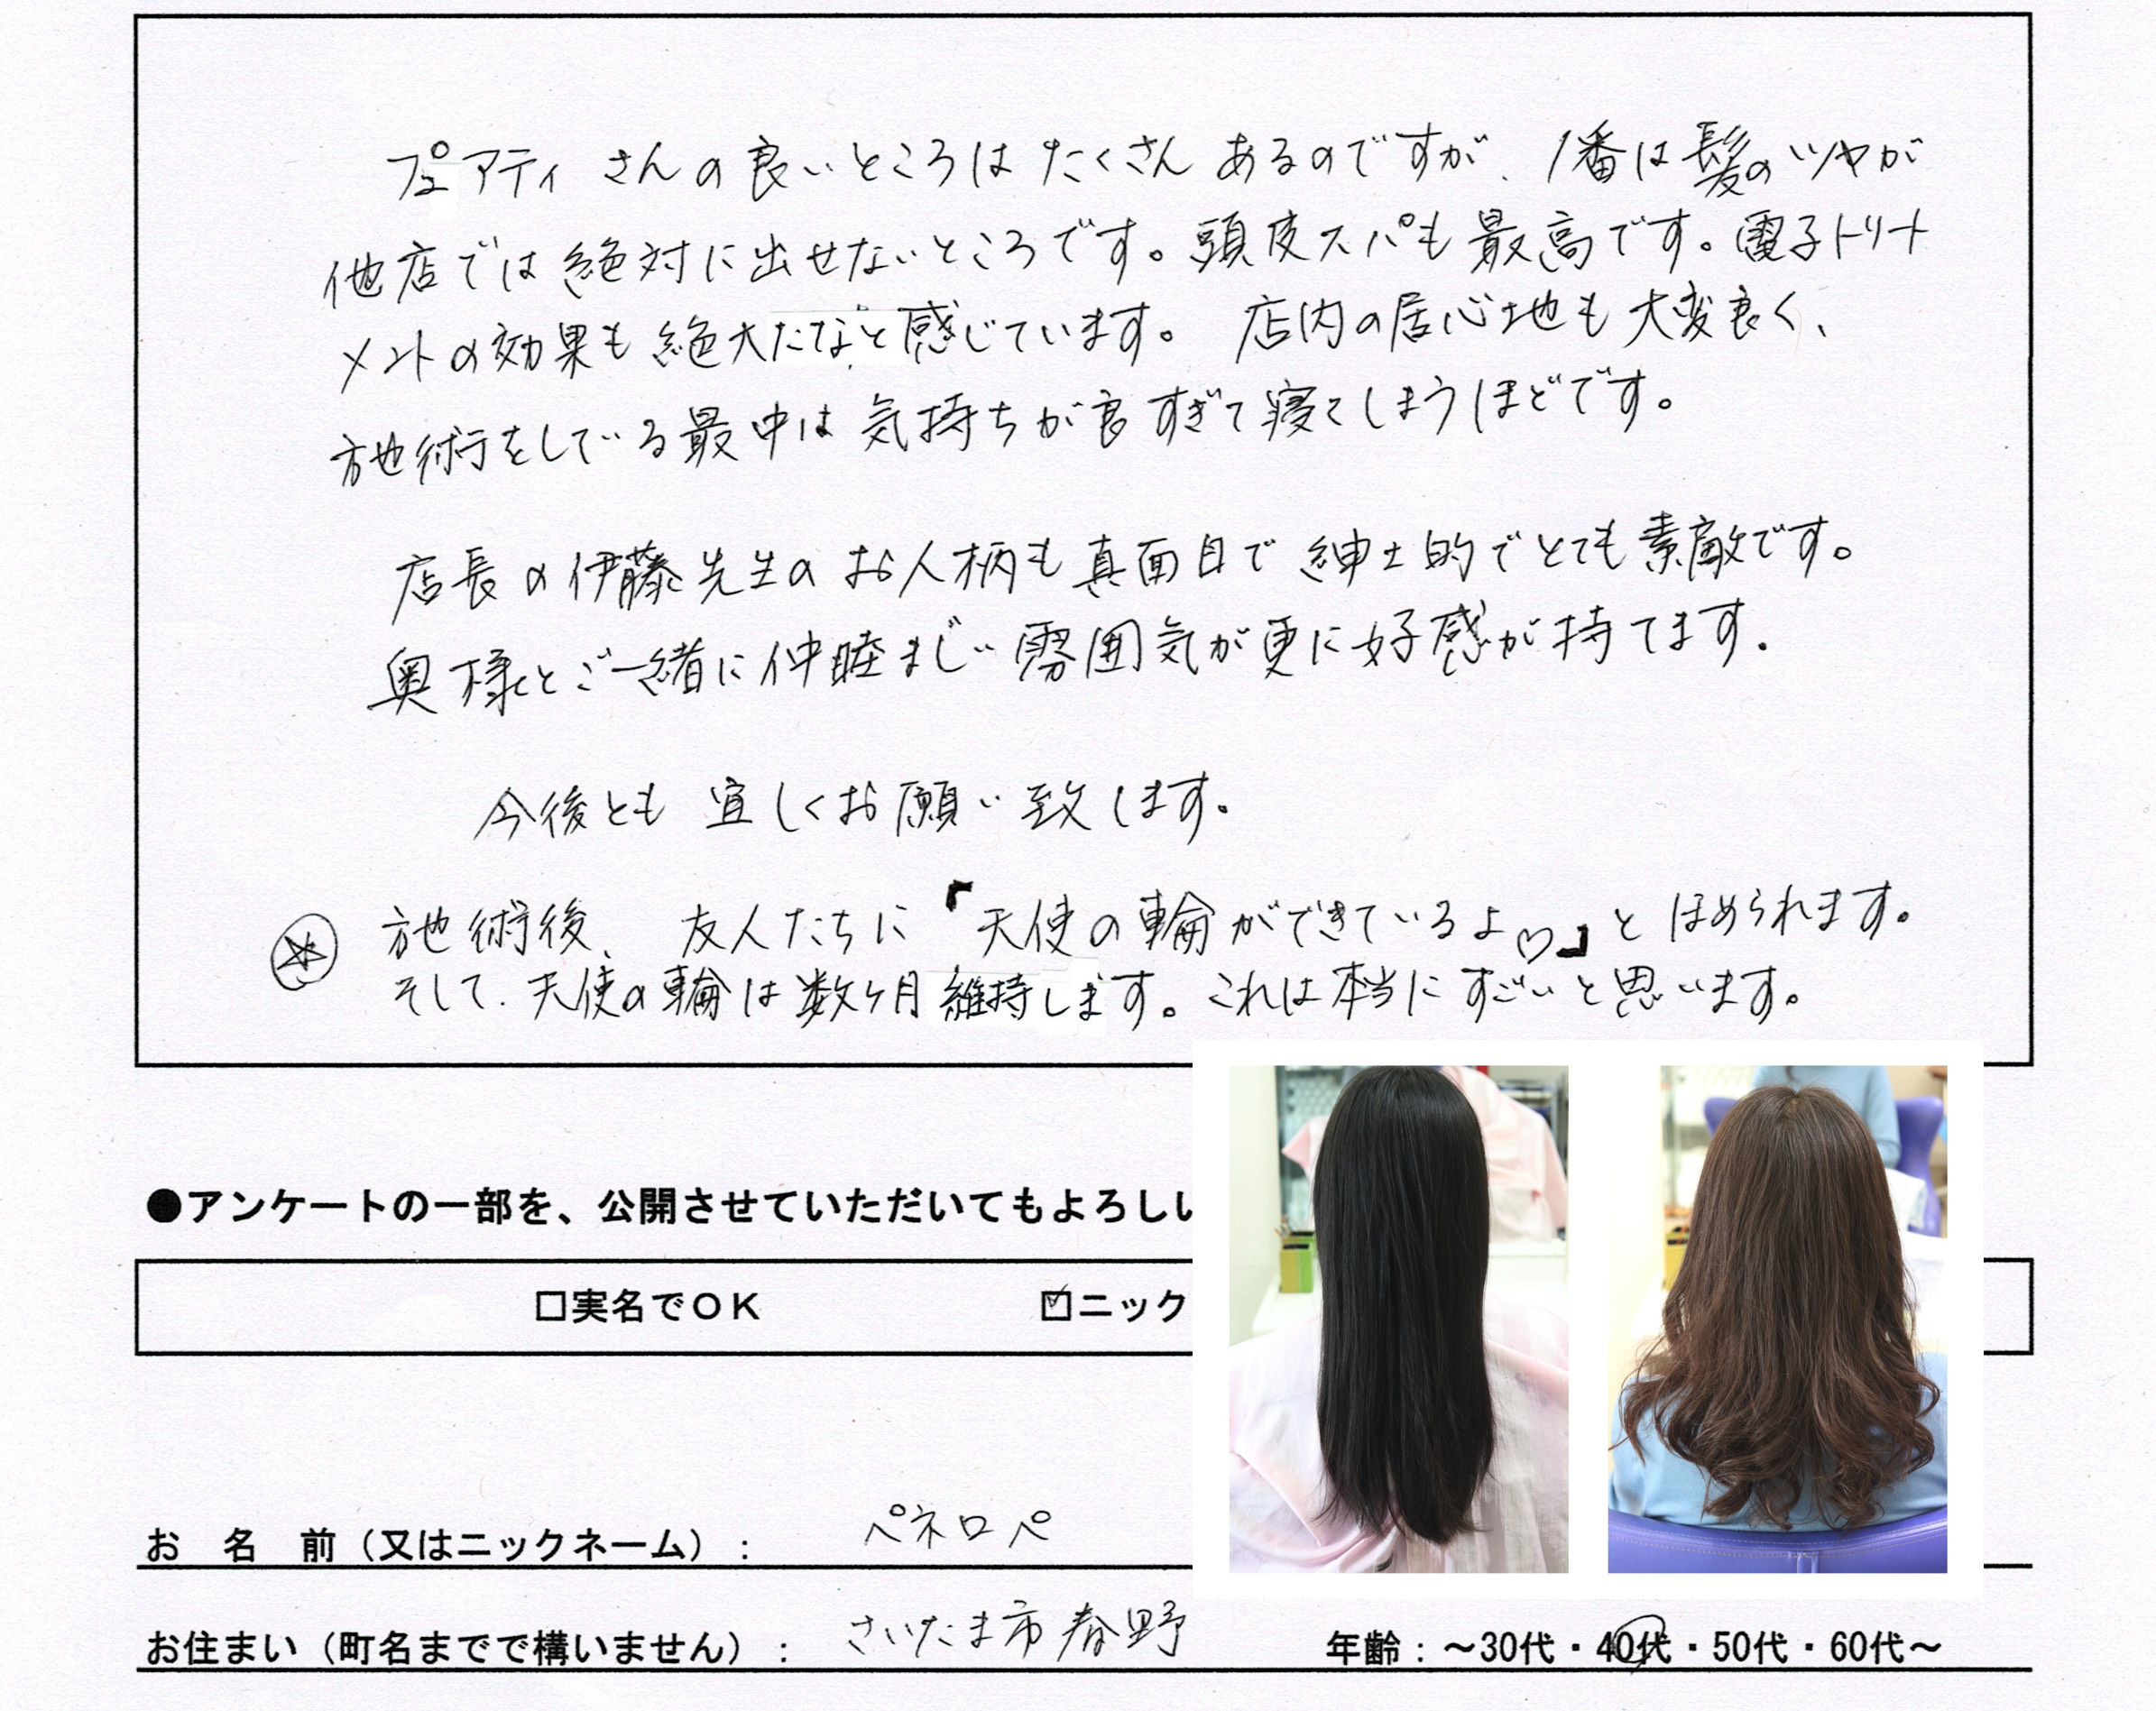 ピュアティさんの良いところはたくさんあるのですが、1番は髪のツヤが
他店では絶対に出せないところです。頭皮スパも最高です。電子トリート
メントの効果も絶大だなと感じています。 店内の居心地も大変良く、
施術をしている最中は気持ちが良すぎて寝てしまうほどです。
店長の伊藤先生のお人柄も真面目で紳士的でとても素敵です。
奥様とご一緒に仲睦まじい雰囲気が更に好感が持てます。
今後とも宜しくお願い致します。
施術後、友人たちに「天使の輪ができているよ♡」とほめられます。
そして、天使の輪は数ヶ月維持します。これは本当にすごいと思います。
●アンケートの一部を、公開させていただいてもよろしい
□実名でOK ☑ニック
お 名 前（又はニックネーム）： ペネロペ
お住まい（町名までで構いません）： さいたま市春野 年齢：～30代・40代・50代・60代～